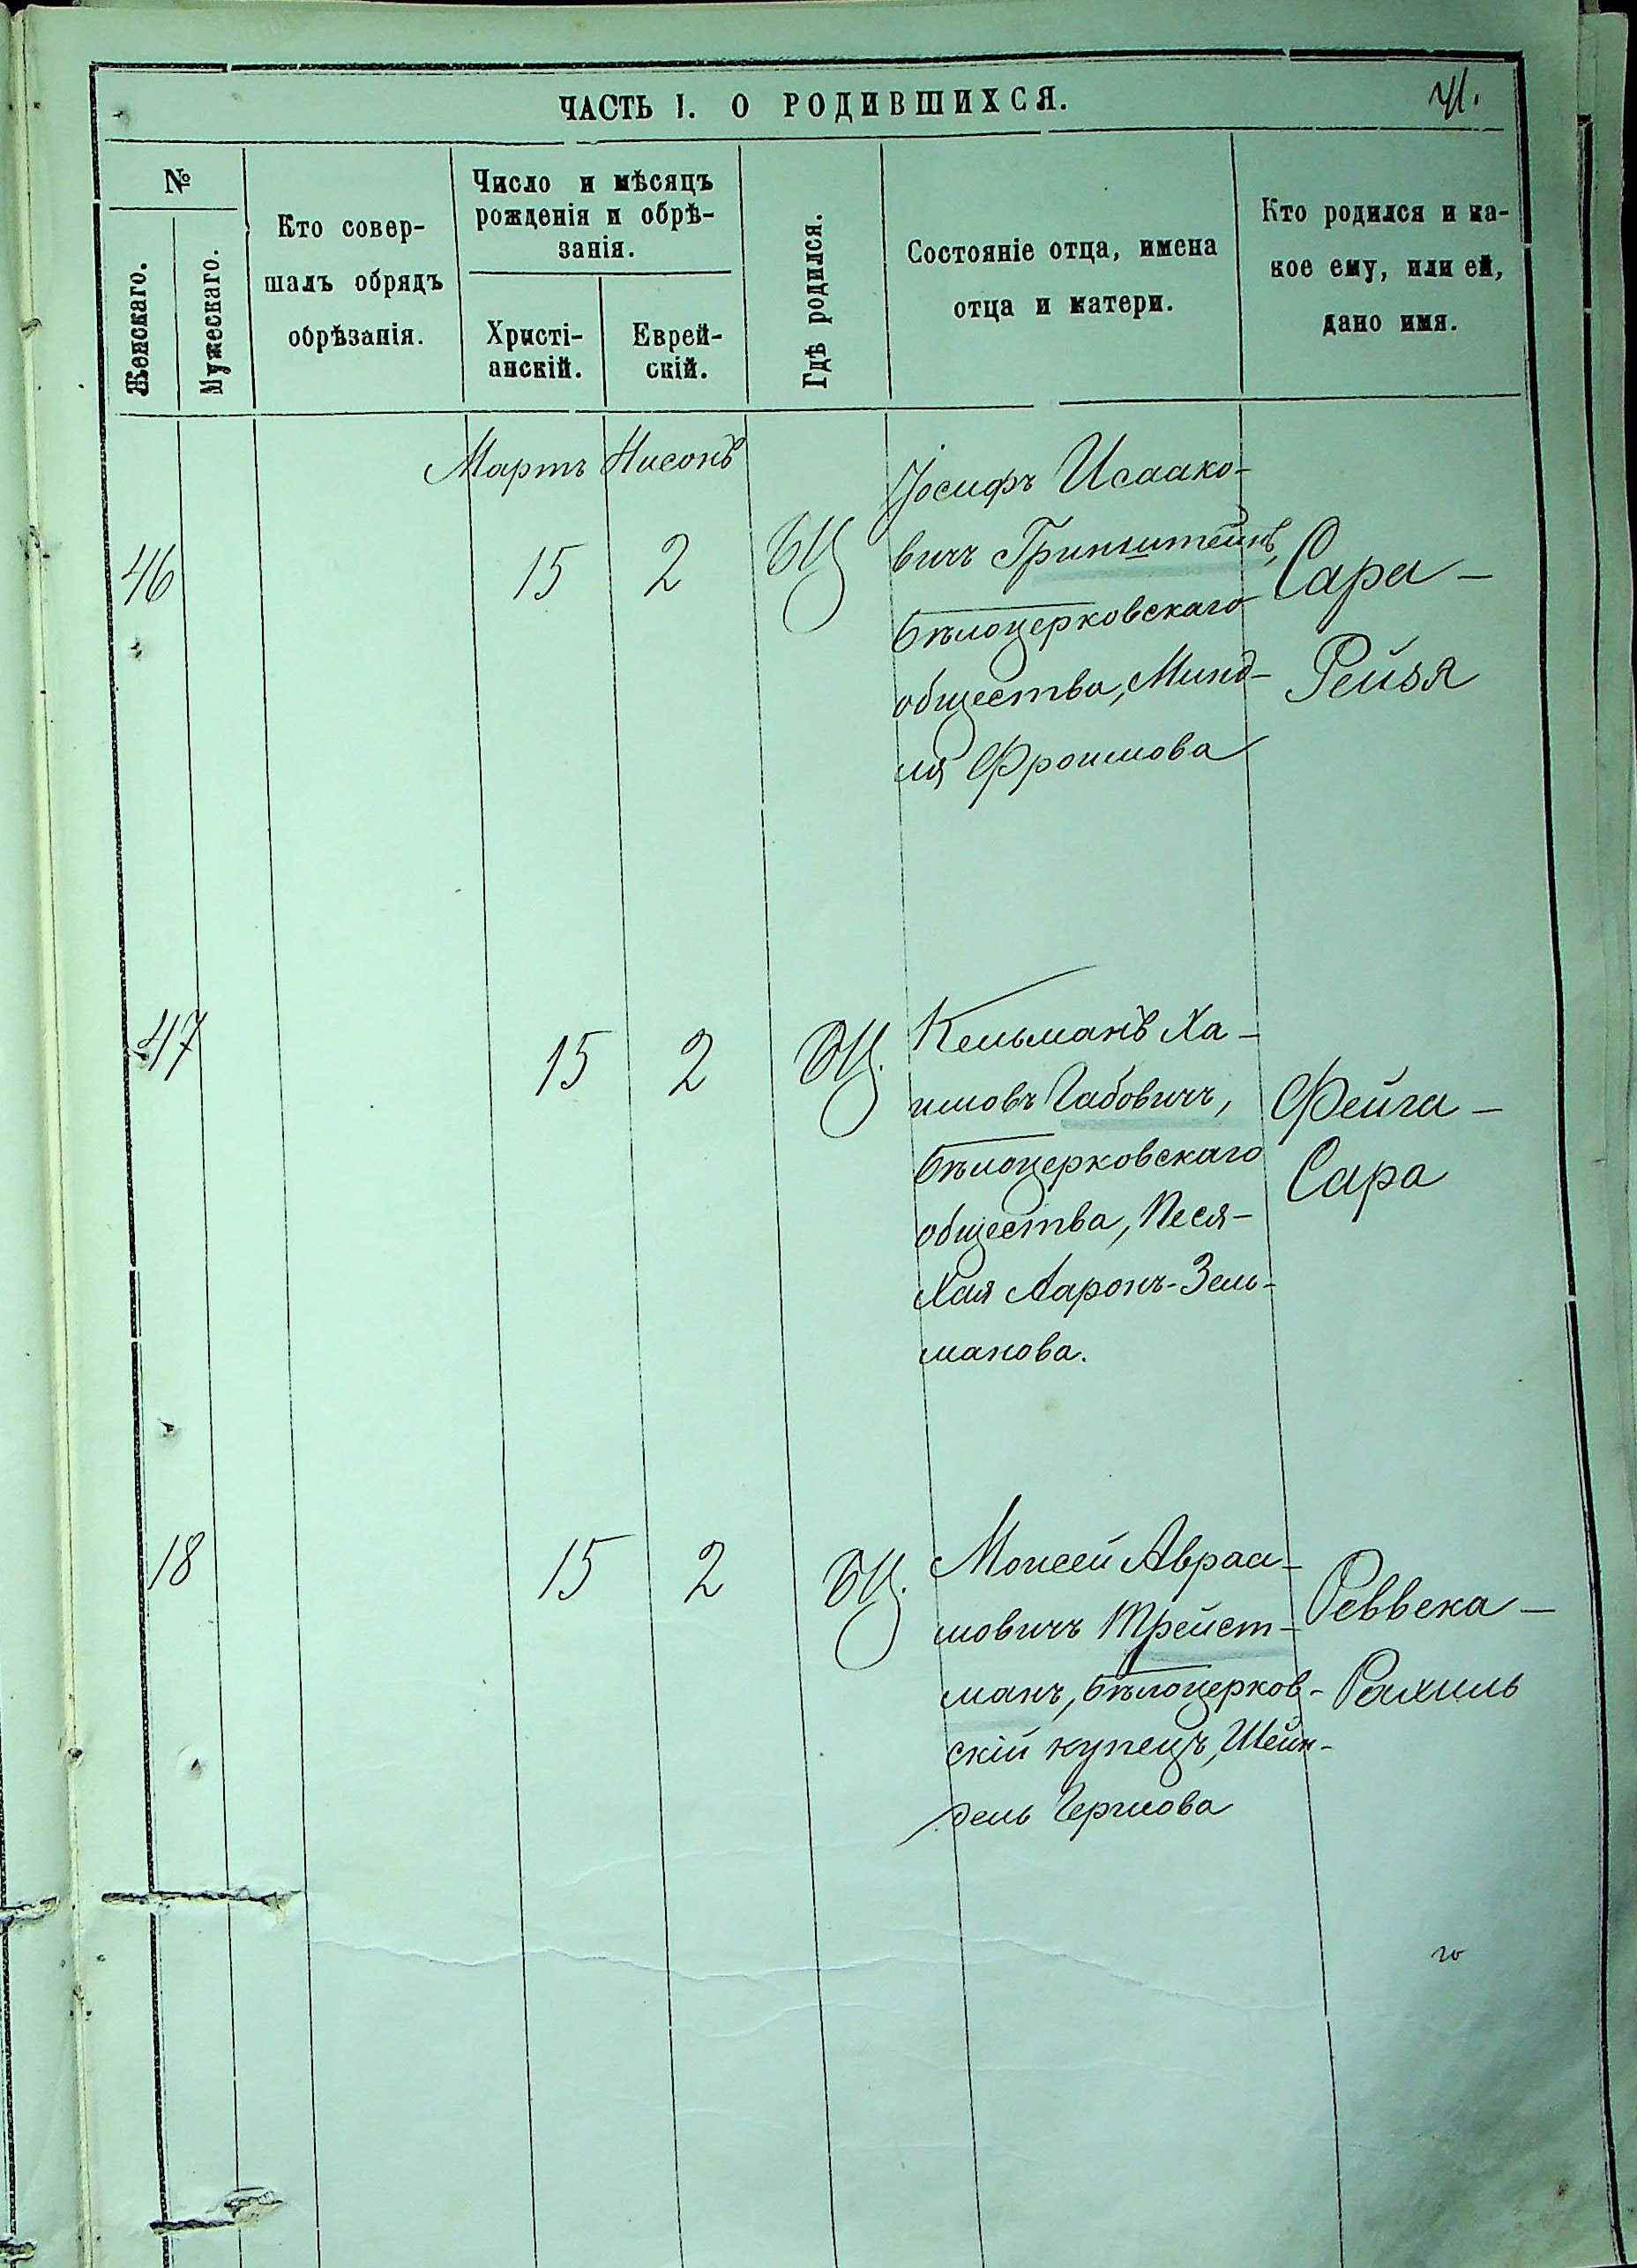 ЧАСТЬ I. О РОДИВШИХСЯ.
№
Женскаго.
Мужескаго.
Кто совер-
шалъ обрядъ
обрѣзанія.
Число и мѣсяцъ
рожденія и обрѣ-
занія.
Христі-
анскій.
Еврей-
скій.
Гдѣ родился.
Состояніе отца, имена
отца и матери.
Кто родился и ка-
кое ему, или ей,
дано имя.
Мартъ Нисонъ
46 15 2 БЦ
Іосифъ Исаако-
вичъ Гринштейнъ,
Бѣлоцерковскаго
общества, Минд-
ля Фроимова
Сара-
Рейзя
47 15 2 БЦ.
Кельманъ Ха-
имовъ Габовичъ,
Бѣлоцерковскаго
общества, Песя-
Хая Ааронъ-Зель-
манова.
Фейга-
Сара
18 15 2 БЦ.
Моисей Авраа-
мовичъ Трейст-
манъ, Бѣлоцерков-
скій купецъ, Шейн-
дель Гершова
Реввека-
Рахиль